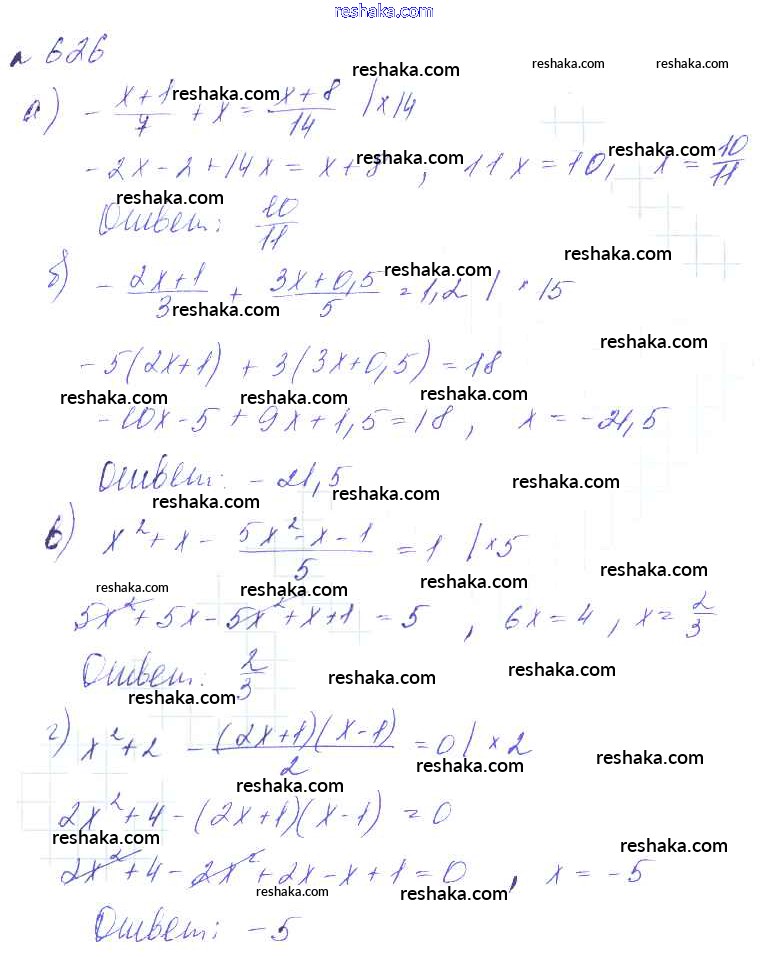 reshaka.com
№ 626
reshaka.com reshaka.com reshaka.com
а) - (x+1)/7 + x = (x+8)/14 |×14
reshaka.com
-2x-2+14x = x+8, 11x=10, x = 10/11
reshaka.com reshaka.com
Ответ: 10/11
reshaka.com
reshaka.com
б) - (2x+1)/3 + (3x+0,5)/5 = 1,2 | ×15
reshaka.com reshaka.com
reshaka.com
-5(2x+1) + 3(3x+0,5) = 18
reshaka.com reshaka.com reshaka.com
-10x-5+9x+1,5=18, x=-21,5
Ответ: -21,5
reshaka.com reshaka.com reshaka.com
в) x²+x- (5x²-x-1)/5 = 1 |×5
reshaka.com reshaka.com reshaka.com reshaka.com
5x²+5x-5x²+x+1 = 5, 6x=4, x=2/3
Ответ: 2/3
reshaka.com reshaka.com reshaka.com
г) x²+2 - (2x+1)(x-1)/2 = 0 | ×2
reshaka.com reshaka.com reshaka.com
2x²+4-(2x+1)(x-1) = 0
reshaka.com reshaka.com
2x²+4-2x²+2x-x+1=0, x=-5
reshaka.com reshaka.com
Ответ: -5